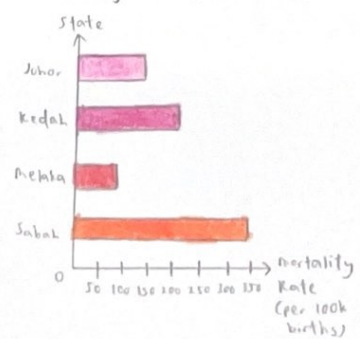 State
Johor
Kedah
Melaka
Sabah
0
50 100 150 200 250 300 350
mortality
Rate
(per 100k
births)